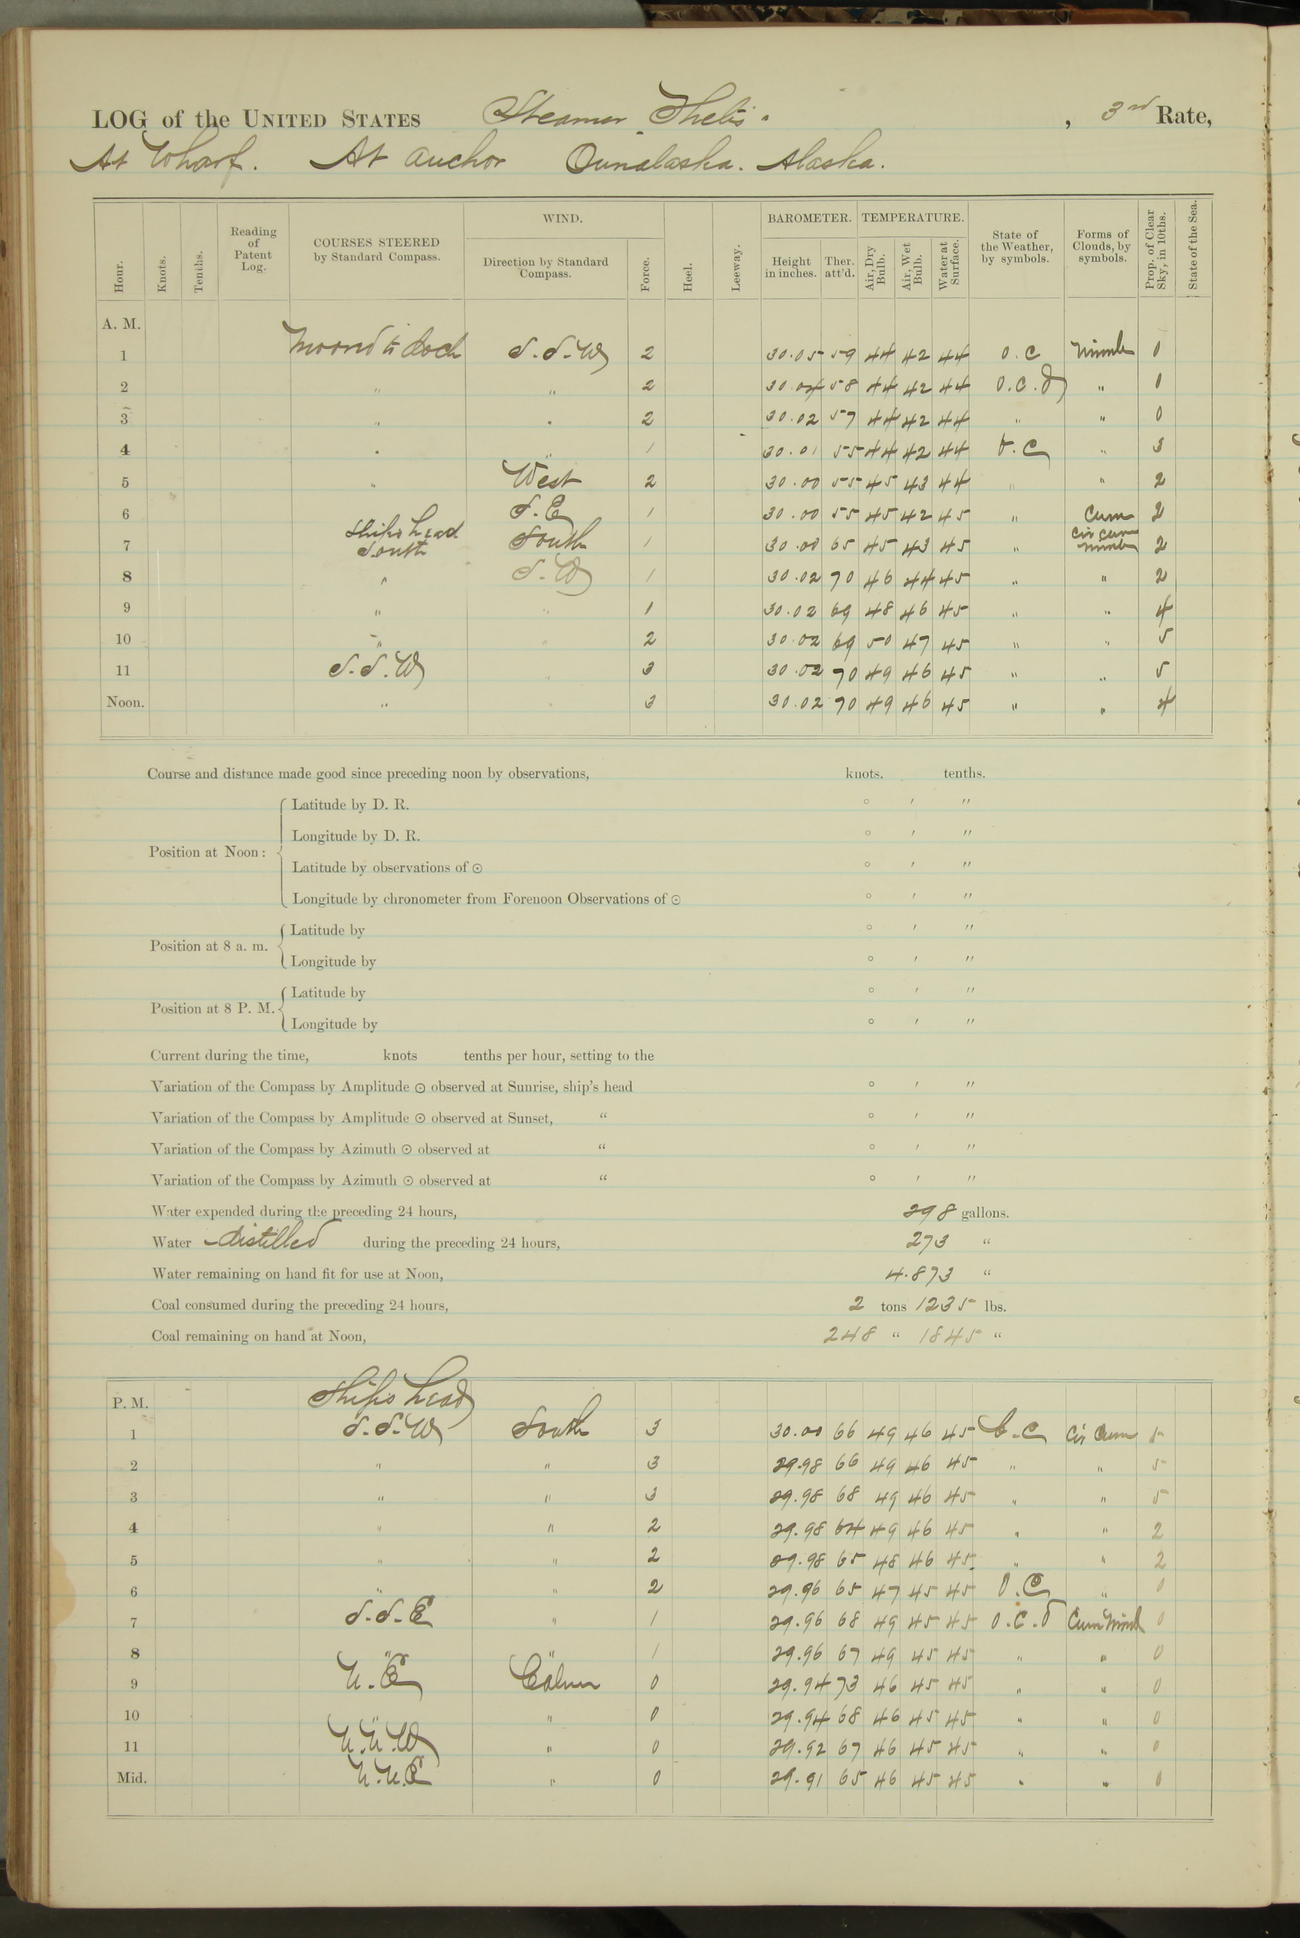 LOG of the UNITED STATES Steamer "Thetis" , 3rd Rate,
At Wharf. At anchor Ounalaska. Alaska.
Hour. Knots. Tenths. Reading of Patent Log. COURSES STEERED by Standard Compass. WIND. Direction by Standard Compass. Force. Heel. Leeway. BAROMETER. Height in inches. Ther. att'd. TEMPERATURE. Air, Dry Bulb. Air, Wet Bulb. Water at Surface. State of the Weather, by symbols. Forms of Clouds, by symbols. Prop. of Clear Sky, in 10ths. State of the Sea.
A. M.
1 Moored to dock S.S.W 2 30.05 59 44 42 44 o.c Nimb 0
2 " " 2 30.04 58 44 42 44 o.c.d " 0
3 " " 2 30.02 57 44 42 44 " " 0
4 " " 1 30.01 55 44 42 44 b.c " 3
5 " West 2 30.00 55 45 43 44 " " 2
6 S.E 1 30.00 55 45 42 45 " Cum 2
7 Ships head South South 1 30.00 65 45 43 45 " Cir Cum Nimb 2
8 " S.W 1 30.02 70 46 44 45 " " 2
9 " " 1 30.02 69 48 46 45 " " 4
10 " " 2 30.02 69 50 47 45 " " 5
11 S.S.W " 3 30.02 70 49 46 45 " " 5
Noon. " " 3 30.02 70 49 46 45 " " 4
Course and distance made good since preceding noon by observations, knots. tenths.
Position at Noon:
Latitude by D. R. ° ′ ″
Longitude by D. R. ° ′ ″
Latitude by observations of ☉ ° ′ ″
Longitude by chronometer from Forenoon Observations of ☉ ° ′ ″
Position at 8 a. m.
Latitude by ° ′ ″
Longitude by ° ′ ″
Position at 8 P. M.
Latitude by ° ′ ″
Longitude by ° ′ ″
Current during the time, knots tenths per hour, setting to the
Variation of the Compass by Amplitude ☉ observed at Sunrise, ship's head ° ′ ″
Variation of the Compass by Amplitude ☉ observed at Sunset, “ ° ′ ″
Variation of the Compass by Azimuth ☉ observed at “ ° ′ ″
Variation of the Compass by Azimuth ☉ observed at “ ° ′ ″
Water expended during the preceding 24 hours, 298 gallons.
Water distilled during the preceding 24 hours, 273 “
Water remaining on hand fit for use at Noon, 4.873 “
Coal consumed during the preceding 24 hours, 2 tons 1235 lbs.
Coal remaining on hand at Noon, 248 “ 1845 “
P. M. Ships head
1 S.S.W South 3 30.00 66 49 46 45 b.c Cir Cum 5
2 " " 3 29.98 66 49 46 45 " " 5
3 " " 3 29.98 68 49 46 45 " " 5
4 " " 2 29.98 64 49 46 45 " " 2
5 " " 2 29.98 65 48 46 45 " " 2
6 " " 2 29.96 65 47 45 45 o.c " 0
7 S.S.E " 1 29.96 68 49 45 45 o.c.d Cum Nimb 0
8 " " 1 29.96 67 49 45 45 " " 0
9 N.E Calm 0 29.94 73 46 45 45 " " 0
10 " " 0 29.94 68 46 45 45 " " 0
11 N.N.W " 0 29.92 67 46 45 45 " " 0
Mid. N.N.E " 0 29.91 65 46 45 45 " " 0